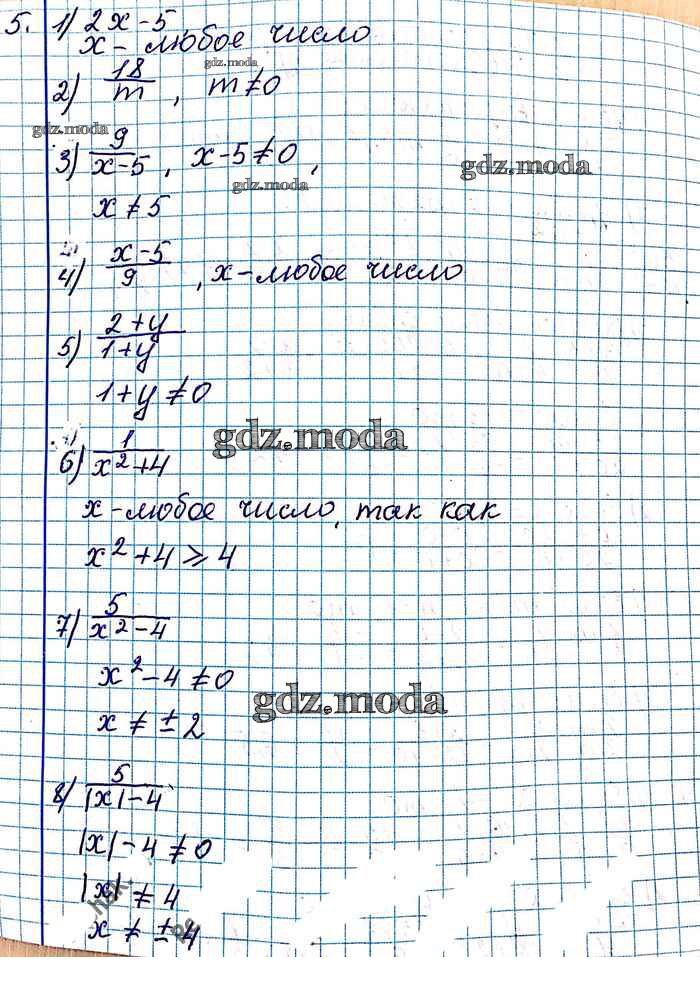 5. 1) 2x-5
x - любое число
gdz.moda
2) 18/m , m≠0
gdz.moda
3) 9/(x-5) , x-5≠0 ,
gdz.moda
gdz.moda
x≠5
4) (x-5)/9 , x-любое число
5) (2+y)/(1+y)
1+y≠0
gdz.moda
6) 1/(x²+4)
x-любое число, так как
x²+4⩾4
7) 5/(x²-4)
x²-4≠0
gdz.moda
x≠±2
8) 5/(|x|-4)
|x|-4≠0
|x|≠4
x≠±4